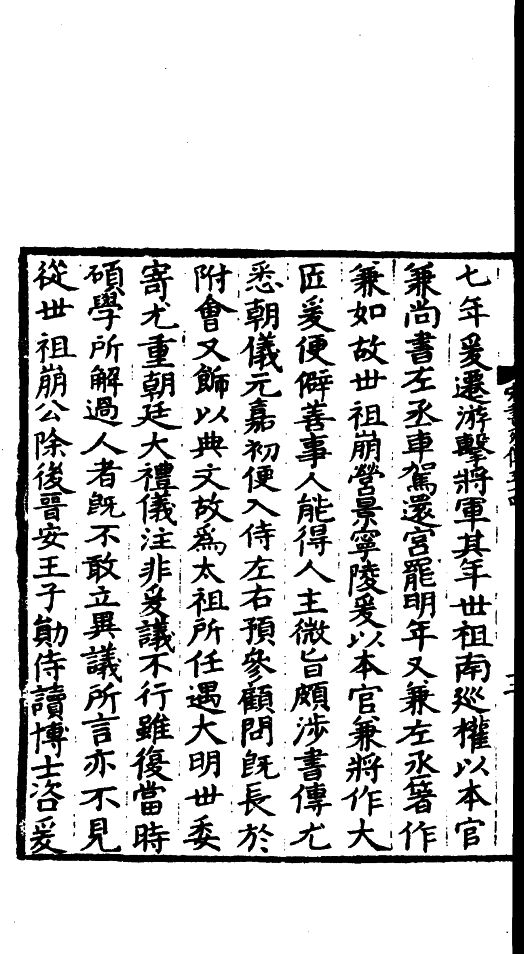 七年爰遷游擊將軍其年世祖南巡權以本官
兼尚書左丞車駕還宮罷明年又兼左丞著作
兼如故世祖崩營景寧陵爰以本官兼將作大
匠爰便僻善事人能得人主微旨頗涉書傳尤
悉朝儀元嘉初便入侍左右預參顧問既長於
附會又飾以典文故爲太祖所任遇大明世委
寄尤重朝廷大禮儀注非爰議不行雖復當時
碩學所解過人者既不敢立異議所言亦不見
從世祖崩公除後晉安王子勛侍讀博士咨爰